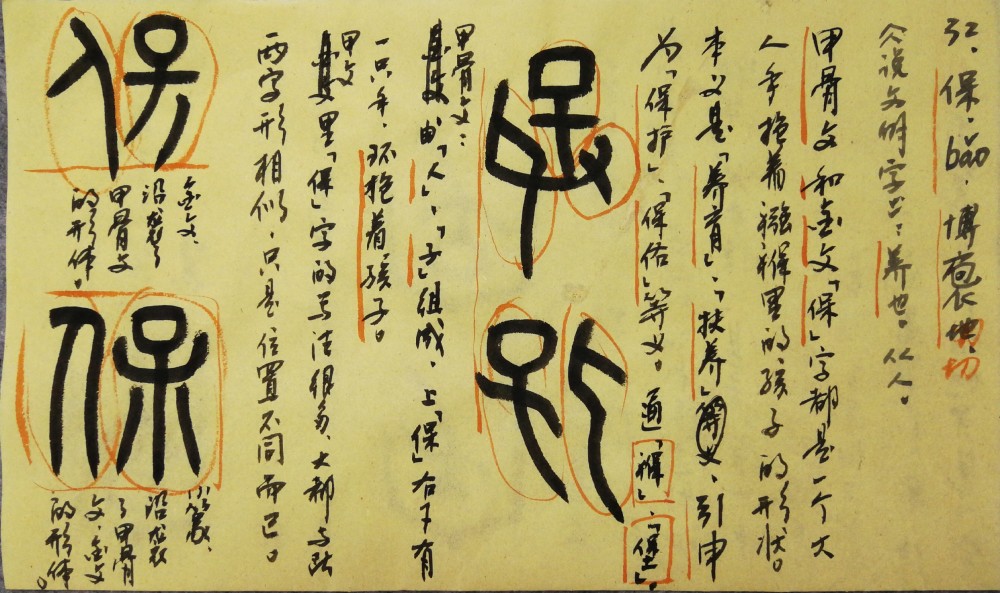 32、保，bǎo，博袌切
《说文解字》：养也。从人。
甲骨文和金文「保」字都是一个大
人手抱着襁褓里的孩子的形状。
本义是「养育」、「扶养」等义、引申
为「保护」、「保佑」等义。通「褓」、「堡」。
甲骨文：
由「人」、「子」组成，上「保」右下有
一只手，环抱着孩子。
甲文
里「保」字的写法很多、大都与此
两字形相似，只是位置不同而已。
金文、
沿袭了
甲骨文
的形体。
小篆、
沿袭
了甲骨
文、金文
的形体。